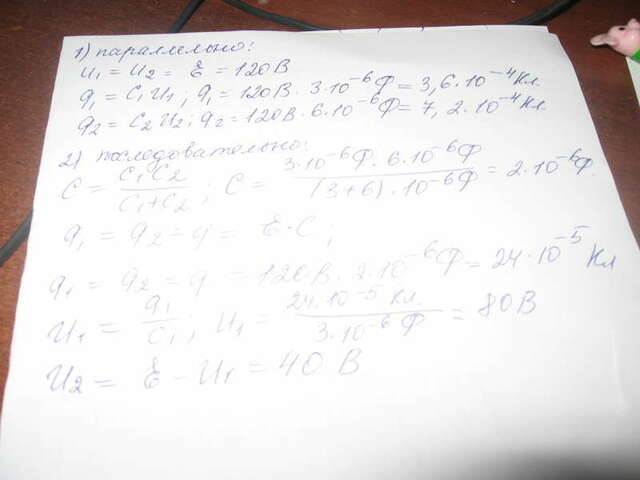 1) параллельно:
U₁ = U₂ = Ɛ = 120 В
q₁ = C₁U₁; q₁ = 120 В · 3·10⁻⁶Ф = 3,6·10⁻⁴Кл.
q₂ = C₂U₂; q₂ = 120 В · 6·10⁻⁶Ф = 7,2·10⁻⁴Кл.
2) последовательно:
C = C₁C₂ / C₁+C₂; C = 3·10⁻⁶Ф · 6·10⁻⁶Ф / (3+6)·10⁻⁶Ф = 2·10⁻⁶Ф.
q₁ = q₂ = q = Ɛ·C;
q₁ = q₂ = q = 120 В · 2·10⁻⁶Ф = 24·10⁻⁵ Кл
U₁ = q₁ / C₁; U₁ = 24·10⁻⁵ Кл. / 3·10⁻⁶ Ф = 80 В
U₂ = Ɛ - U₁ = 40 В